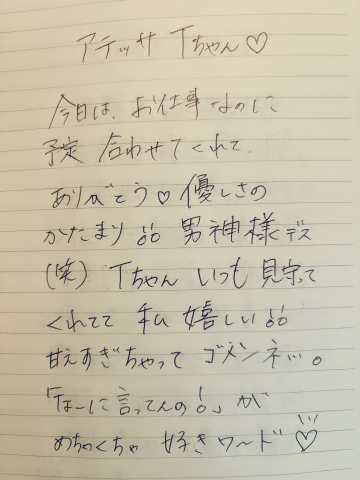 アテッサ Tちゃん♡
今日は、お仕事なのに
予定 合わせてくれて
ありがとう♡優しさの
かたまり!! 男神様デス
(笑) Tちゃん いつも 見守って
くれてて 私 嬉しい!!
甘えすぎちゃって ゴメンネ...。
「なーに言ってんの!」が
めちゃくちゃ 好きワード♡